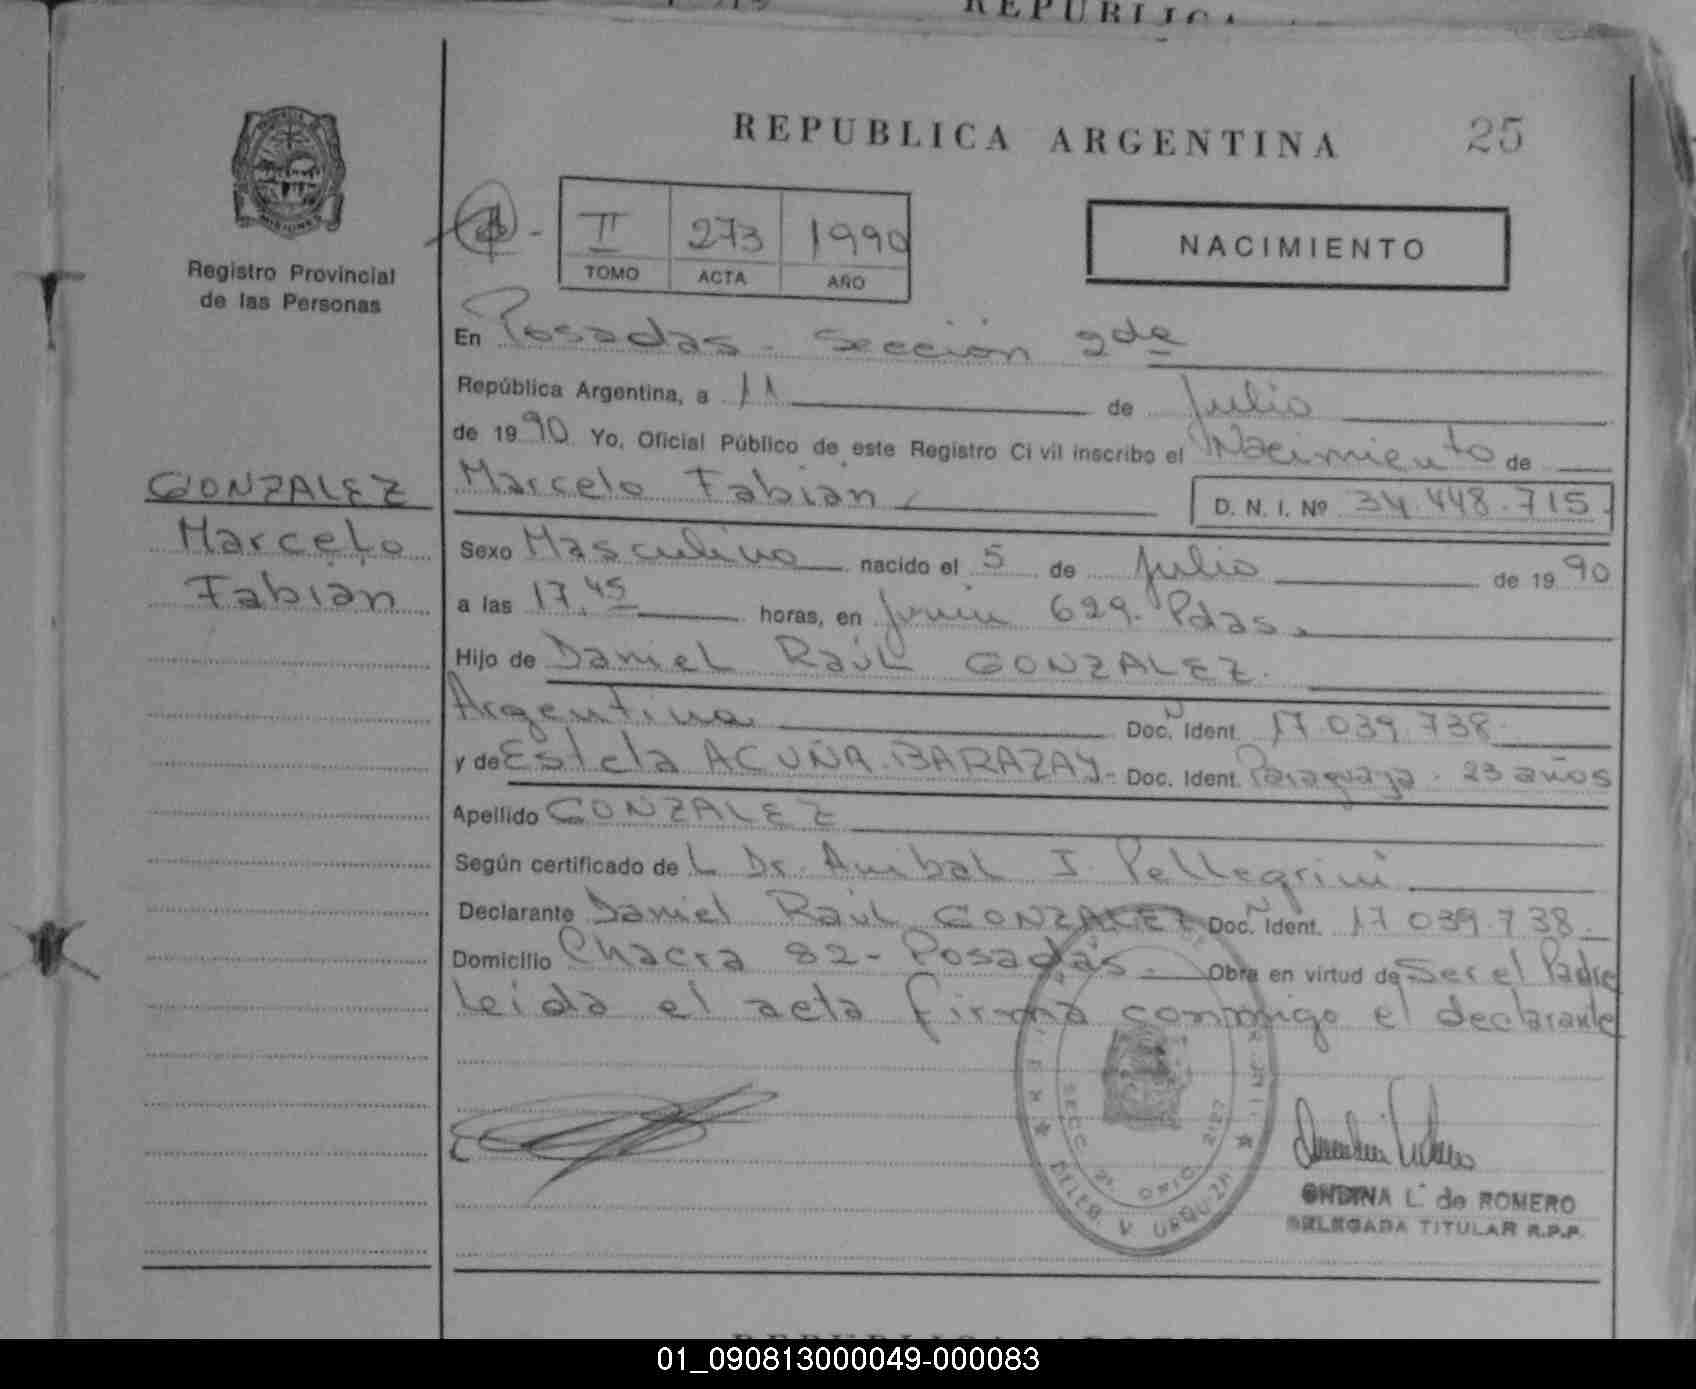 REPUBLICA
REPUBLICA ARGENTINA 25
Registro Provincial
de las Personas
II 273 1990
TOMO ACTA AÑO
NACIMIENTO
En Posadas. Sección 2da
República Argentina, a 11 de Julio
de 1990 Yo, Oficial Público de este Registro Civil inscribo el Nacimiento de
GONZALEZ
Marcelo
Fabian
Marcelo Fabian D. N. I. Nº 34.448.715.
Sexo Masculino nacido el 5 de Julio de 1990
a las 17.45 horas, en Junin 629. Pdas.
Hijo de Daniel Raúl GONZALEZ.
Argentina Doc. N Ident. 17.039.738
y de Estela ACUÑA.BARAZAY- Doc. Ident. Paraguaya. 23 años
Apellido GONZALEZ
Según certificado de L Dr. Anibal J. Pellegrini
Declarante Daniel Raúl GONZALEZ Doc. N Ident. 17.039.738.
Domicilio Chacra 82- Posadas. Obra en virtud de Ser el Padre
leida el acta firma conmigo el declarante
SECC. 2ª. OFIC. 2127
DELEG. V. URQUIZA
ONDINA L. de ROMERO
DELEGADA TITULAR R.P.P.
01_090813000049-000083